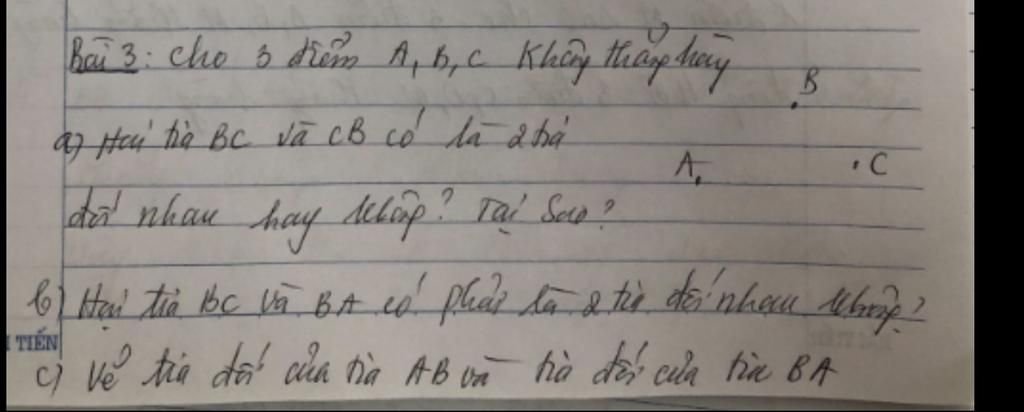 Bài 3: Cho 3 điểm A, B, C Không thẳng hàng
B
a) Hai tia BC và CB có là 2 tia
A
C
đối nhau hay không? Tại Sao?
b) Hai tia BC và BA có phải là 2 tia đối nhau không?
TIẾN
c) Vẽ tia đối của tia AB và tia đối của tia BA